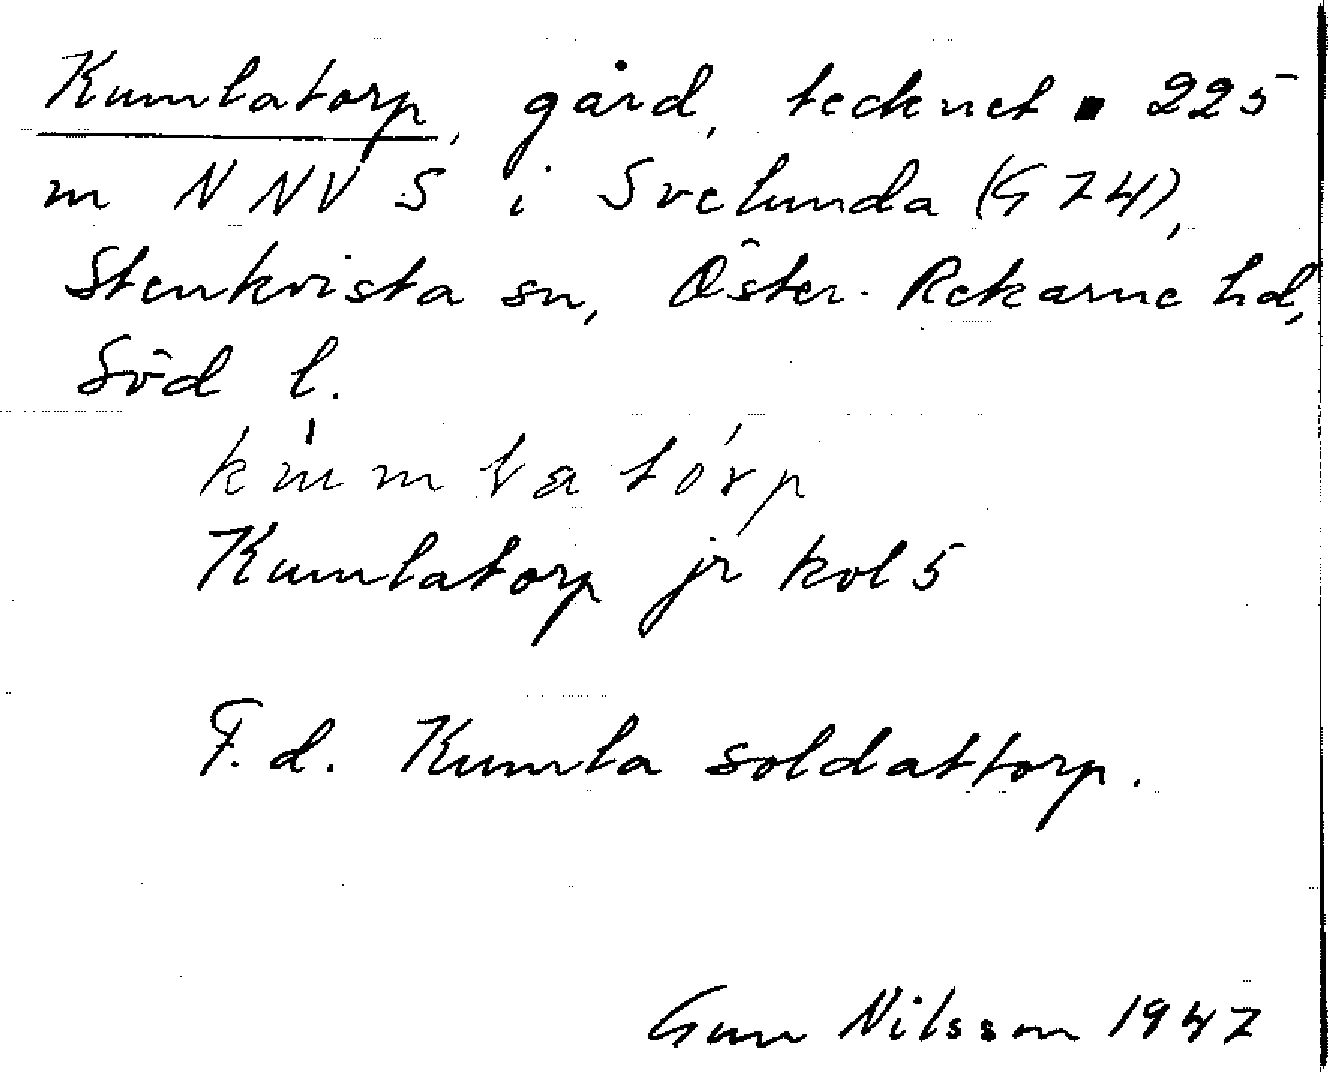 Kumlatorp, gård, tecknet ▪ 225
m NNV S i Svelunda (G 74),
Stenkvista sn, Öster-Rekarne hd,
Söd l.
Kumlatorp jr kol 5
F.d. Kumla soldattorp.
Gun Nilsson 1947